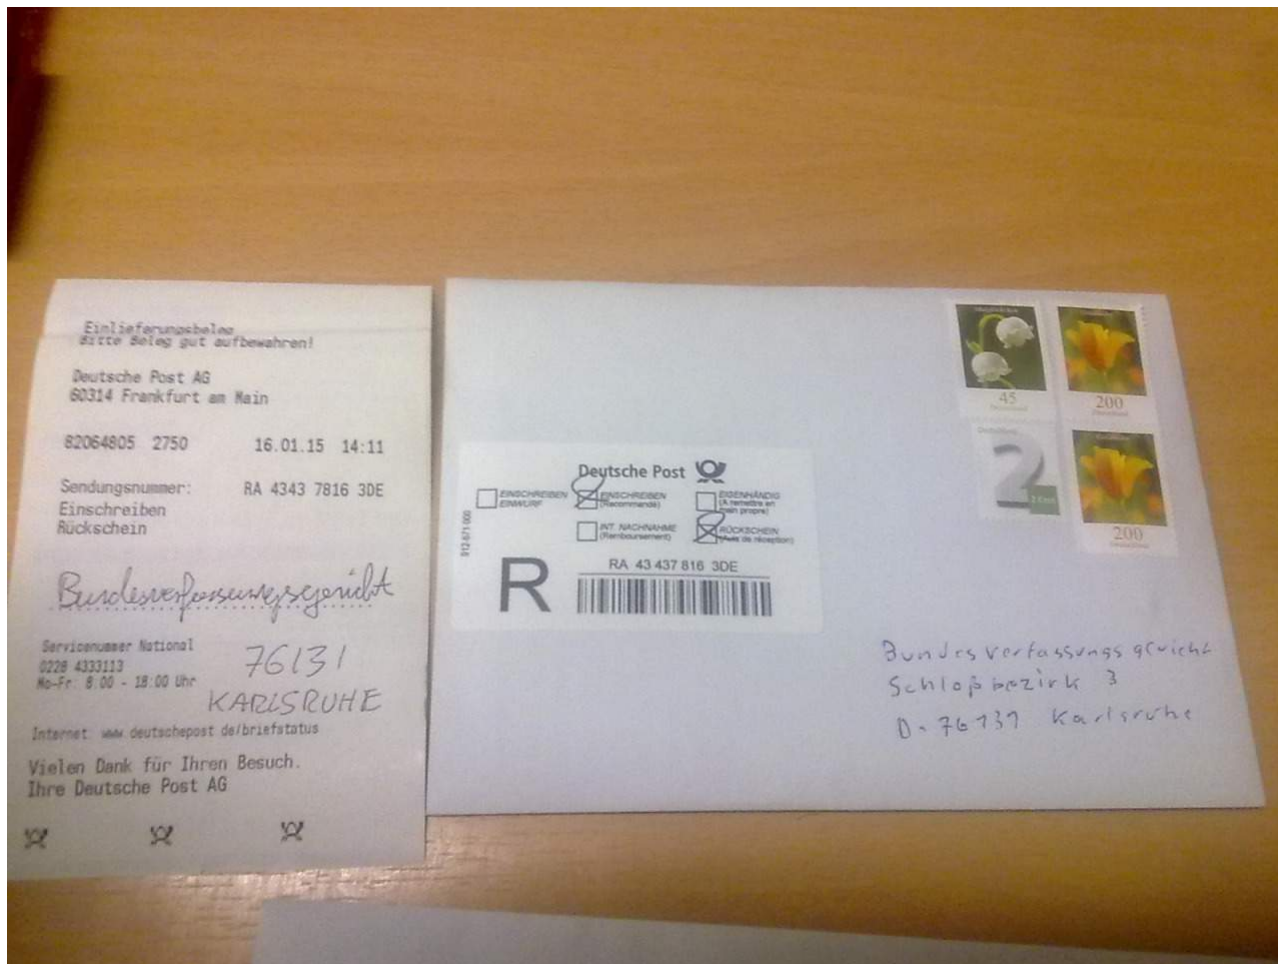 Einlieferungsbeleg
Bitte Beleg gut aufbewahren!
Deutsche Post AG
60314 Frankfurt am Main
82064805 2750 16.01.15 14:11
Sendungsnummer: RA 4343 7816 3DE
Einschreiben
Rückschein
Bundesverfassungsgericht
Servicenummer National
0228 4333113
Mo-Fr: 8:00 - 18:00 Uhr
76131
KARLSRUHE
Internet: www.deutschepost.de/briefstatus
Vielen Dank für Ihren Besuch.
Ihre Deutsche Post AG
Deutsche Post
EINSCHREIBEN EINWURF
EINSCHREIBEN (Recommandé)
EIGENHÄNDIG (A remettre en main propre)
INT. NACHNAHME (Remboursement)
RÜCKSCHEIN (Avis de réception)
RA 43 437 816 3DE
R
45
Deutschland
200
Deutschland
Deutschland
2
200
Deutschland
Bundesverfassungsgericht
Schloßbezirk 3
D-76131 Karlsruhe